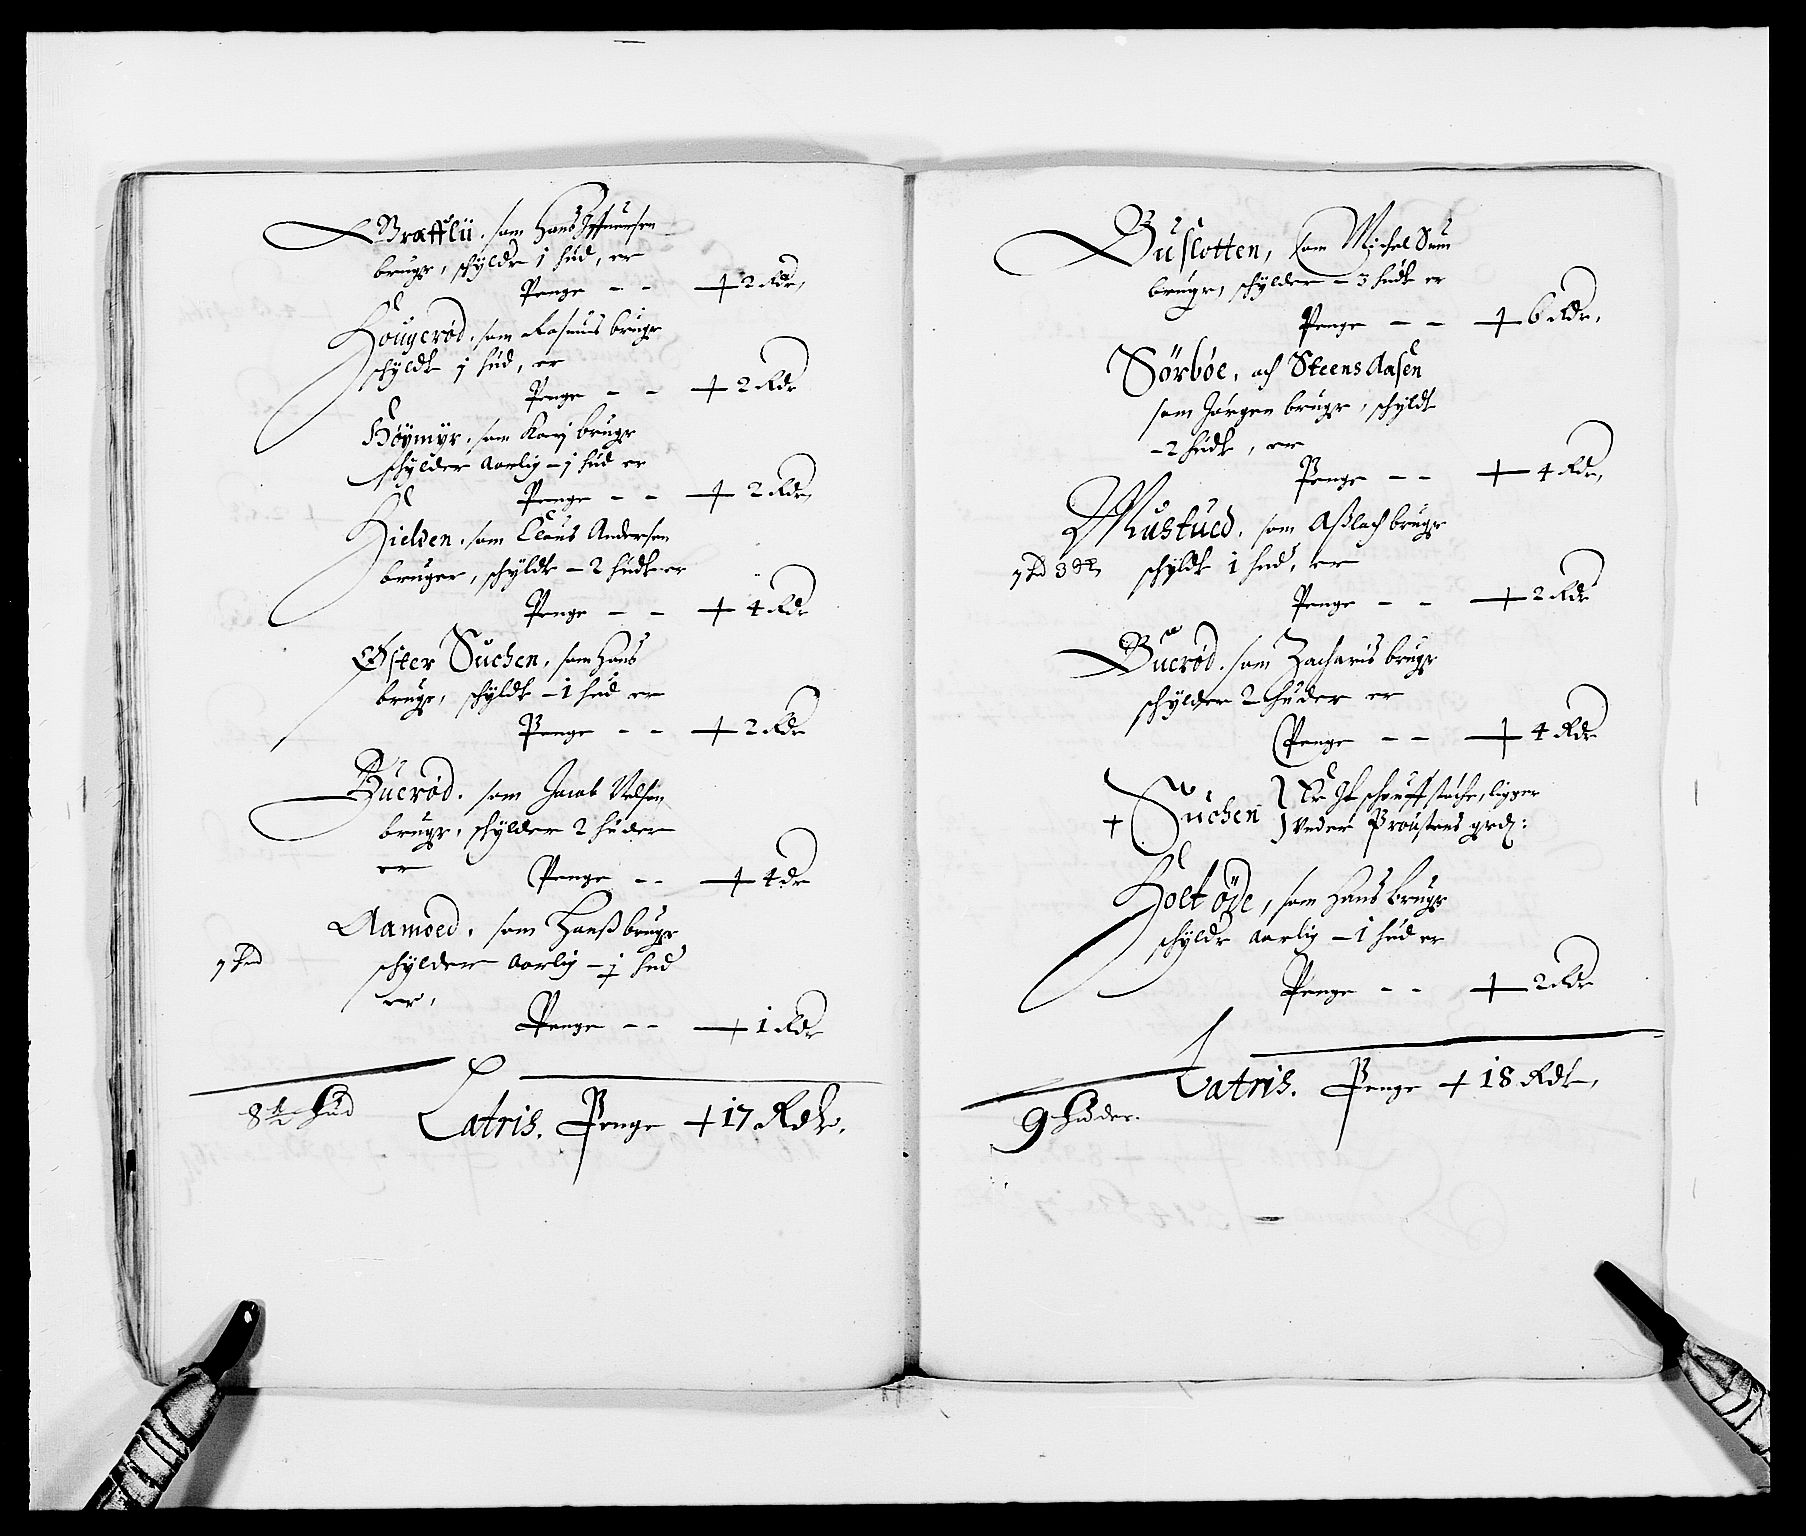 Bræfflii. som Hans
bruger, schylder 1 hud, er
Penge - - + 2 Rdr,
Hougerød. som Rasmus bruger
schylder 1 hud, er
Penge - - + 2 Rdr
Höymyr. som Karj bruger
schylder aarlig - 1 hud er
Penge - - + 2 Rdr,
Hielden. som Claus Andersen
bruger, schylder - 2 huder er
Penge - - + 4 Rdr
Øster Suchen, som Hans
bruger, schylder - 1 hud er
Penge - - + 2 Rdr
Buerød. som Jacob Nelsen
bruger, schylder 2 huder
er Penge - - + 4 dr
Aamoed. som Hanß bruger
schylder aarlig - ½ hud
er,
Penge - - + 1 Rdr
8½ Hud Latris. Penge + 17 Rdr.
Buslotten, som Michel
bruger, schylder - 3 huder er
Penge - - + 6 Rdr,
Sörböe, och Steens Aasen
som Jörgen bruger, schylder
- 2 huder, er
Penge - - + 4 Rdr,
Mustued. som Aßlach bruger
schylder 1 hud, er
Penge - - + 2 Rdr
Buerød. som Zacharis bruger
schylder 2 huder er
Penge - - + 4 Rdr
+ Suchen ligger
under Proustens grd:
Holt öde, som Hans bruger
schylder aarlig - 1 hud er
Penge - - + 2 Rdr
Latris. Penge + 18 Rdr,
9 Huder.